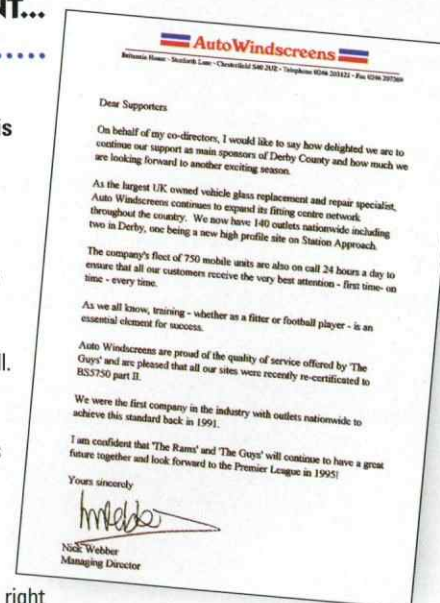 NT...
is
ll.
right
AutoWindscreens
Britannia House - Stonforth Lane - Chesterfield S40 2UZ - Telephone 0246 - Fax 0246
Dear Supporters
On behalf of my co-directors, I would like to say how delighted we are to
continue our support as main sponsors of Derby County and how much we
are looking forward to another exciting season.
As the largest UK owned vehicle glass replacement and repair specialist,
Auto Windscreens continues to expand its fitting centre network
throughout the country. We now have 140 outlets nationwide including
two in Derby, one being a new high profile site on Station Approach.
The company's fleet of 750 mobile units are also on call 24 hours a day to
ensure that all our customers receive the very best attention - first time- on
time - every time.
As we all know, training - whether as a fitter or football player - is an
essential element for success.
Auto Windscreens are proud of the quality of service offered by 'The
Guys' and are pleased that all our sites were recently re-certificated to
BS5750 part II.
We were the first company in the industry with outlets nationwide to
achieve this standard back in 1991.
I am confident that 'The Rams' and 'The Guys' will continue to have a great
future together and look forward to the Premier League in 1995!
Yours sincerely
Nick Webber
Managing Director